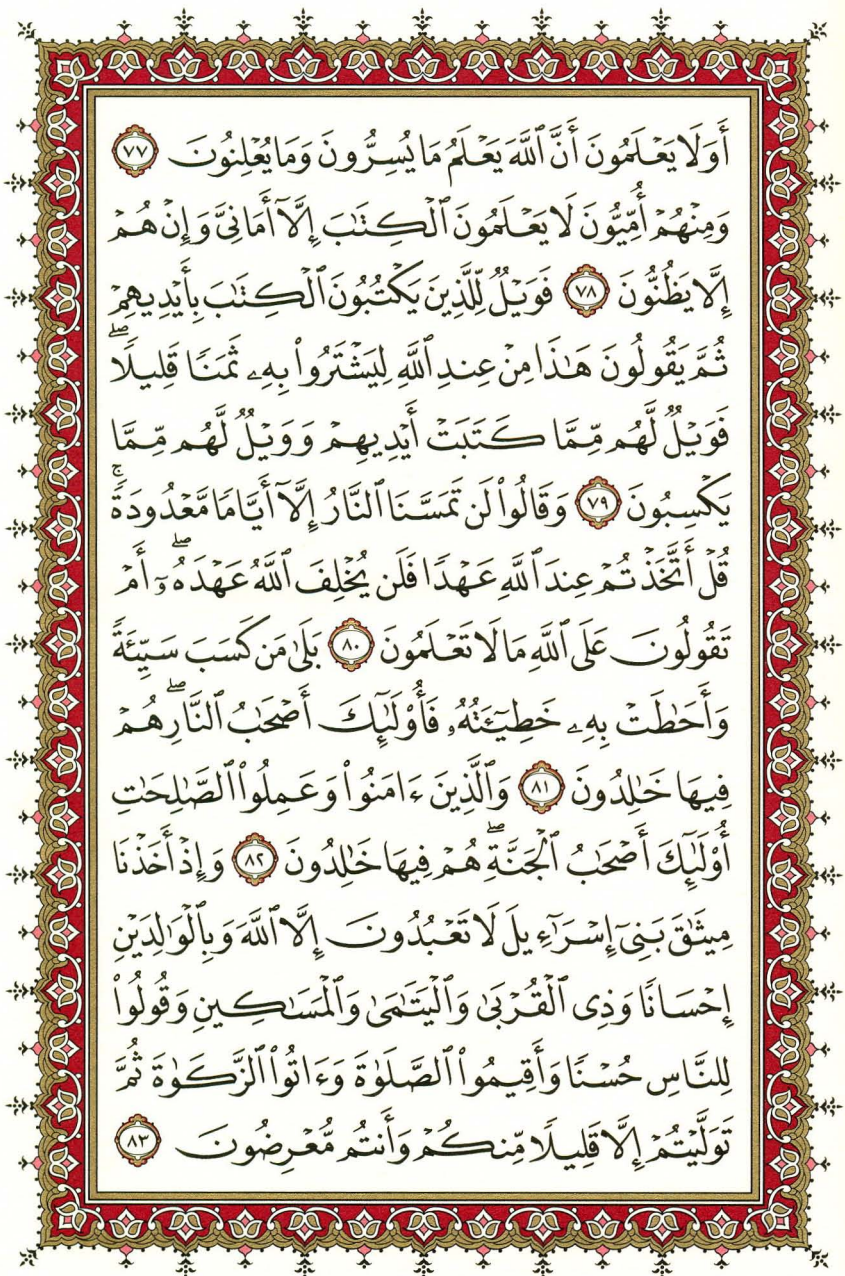 أَوَلَا يَعۡلَمُونَ أَنَّ ٱللَّهَ يَعۡلَمُ مَا يُسِرُّونَ وَمَا يُعۡلِنُونَ ٧٧
وَمِنۡهُمۡ أُمِّيُّونَ لَا يَعۡلَمُونَ ٱلۡكِتَٰبَ إِلَّآ أَمَانِيَّ وَإِنۡ هُمۡ
إِلَّا يَظُنُّونَ ٧٨ فَوَيۡلٞ لِّلَّذِينَ يَكۡتُبُونَ ٱلۡكِتَٰبَ بِأَيۡدِيهِمۡ
ثُمَّ يَقُولُونَ هَٰذَا مِنۡ عِندِ ٱللَّهِ لِيَشۡتَرُواْ بِهِۦ ثَمَنٗا قَلِيلٗاۖ
فَوَيۡلٞ لَّهُم مِّمَّا كَتَبَتۡ أَيۡدِيهِمۡ وَوَيۡلٞ لَّهُم مِّمَّا
يَكۡسِبُونَ ٧٩ وَقَالُواْ لَن تَمَسَّنَا ٱلنَّارُ إِلَّآ أَيَّامٗا مَّعۡدُودَةٗۚ
قُلۡ أَتَّخَذۡتُمۡ عِندَ ٱللَّهِ عَهۡدٗا فَلَن يُخۡلِفَ ٱللَّهُ عَهۡدَهُۥٓۖ أَمۡ
تَقُولُونَ عَلَى ٱللَّهِ مَا لَا تَعۡلَمُونَ ٨٠ بَلَىٰ مَن كَسَبَ سَيِّئَةٗ
وَأَحَٰطَتۡ بِهِۦ خَطِيٓـَٔتُهُۥ فَأُوْلَٰٓئِكَ أَصۡحَٰبُ ٱلنَّارِۖ هُمۡ
فِيهَا خَٰلِدُونَ ٨١ وَٱلَّذِينَ ءَامَنُواْ وَعَمِلُواْ ٱلصَّٰلِحَٰتِ
أُوْلَٰٓئِكَ أَصۡحَٰبُ ٱلۡجَنَّةِۖ هُمۡ فِيهَا خَٰلِدُونَ ٨٢ وَإِذۡ أَخَذۡنَا
مِيثَٰقَ بَنِيٓ إِسۡرَٰٓءِيلَ لَا تَعۡبُدُونَ إِلَّا ٱللَّهَ وَبِٱلۡوَٰلِدَيۡنِ
إِحۡسَانٗا وَذِي ٱلۡقُرۡبَىٰ وَٱلۡيَتَٰمَىٰ وَٱلۡمَسَٰكِينِ وَقُولُواْ
لِلنَّاسِ حُسۡنٗا وَأَقِيمُواْ ٱلصَّلَوٰةَ وَءَاتُواْ ٱلزَّكَوٰةَ ثُمَّ
تَوَلَّيۡتُمۡ إِلَّا قَلِيلٗا مِّنكُمۡ وَأَنتُم مُّعۡرِضُونَ ٨٣